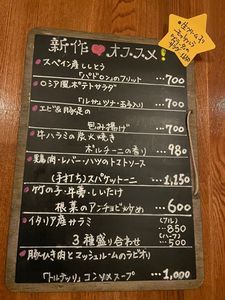 新作❤オススメ!
・スペイン産ししとう
「パドロン」のフリット …700
・ロシア風ポテトサラダ
「レサルソナ・玉子入り」 …700
・エビ&豚足の
包み揚げ …700
・牛ハラミの炭火焼き
ポルチーニの香り …980
・鶏肉・レバー・ハツのトマトソース
(手打ち)スパゲットーニ …1,150
・竹の子・牛蒡・しいたけ
根菜のアンチョビ炒め …600
・イタリア産サラミ (フル) …850
3種盛り合わせ (ハーフ) …500
・豚ひき肉とマッシュルームのラビオリ
「トルテッリ」コンソメスープ …1,000